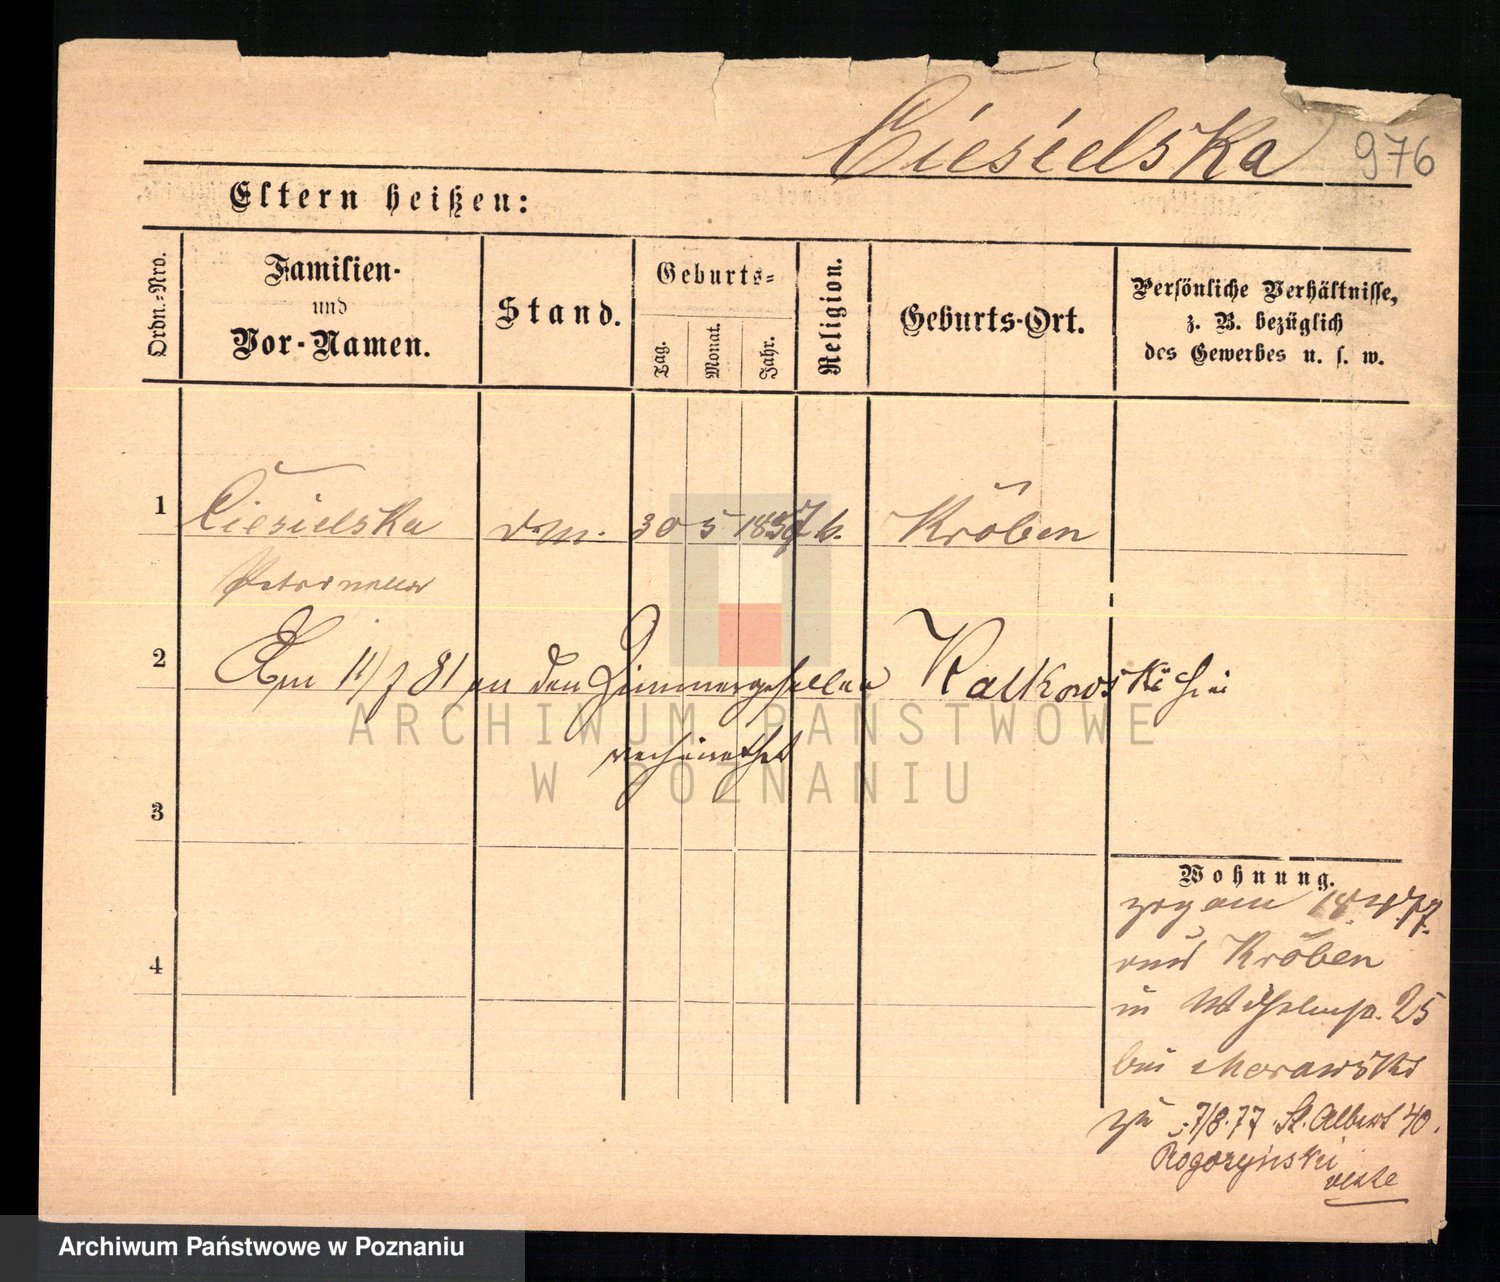 Ciesielska 976
Eltern heißen:
Ordn.-Nro.
Familien-
und
Vor-Namen.
Stand.
Geburts-
Tag.
Monat.
Jahr.
Religion.
Geburts-Ort.
Persönliche Verhältnisse,
z. B. bezüglich
des Gewerbes u. s. w.
1 Ciesielska 30 5 1857 k. Kröben
Petronella
2 Am 11/7 81 an den Zimmergesellen Kalkowski hier
verheirathet
ARCHIWUM PAŃSTWOWE
W POZNANIU
3
4
Wohnung.
zog am 18.4.77.
aus Kröben
in Wilhelmsp. 25
bei Morawski
zu 7/8.77 St. Albert 40.
Rogozynski
Archiwum Państwowe w Poznaniu